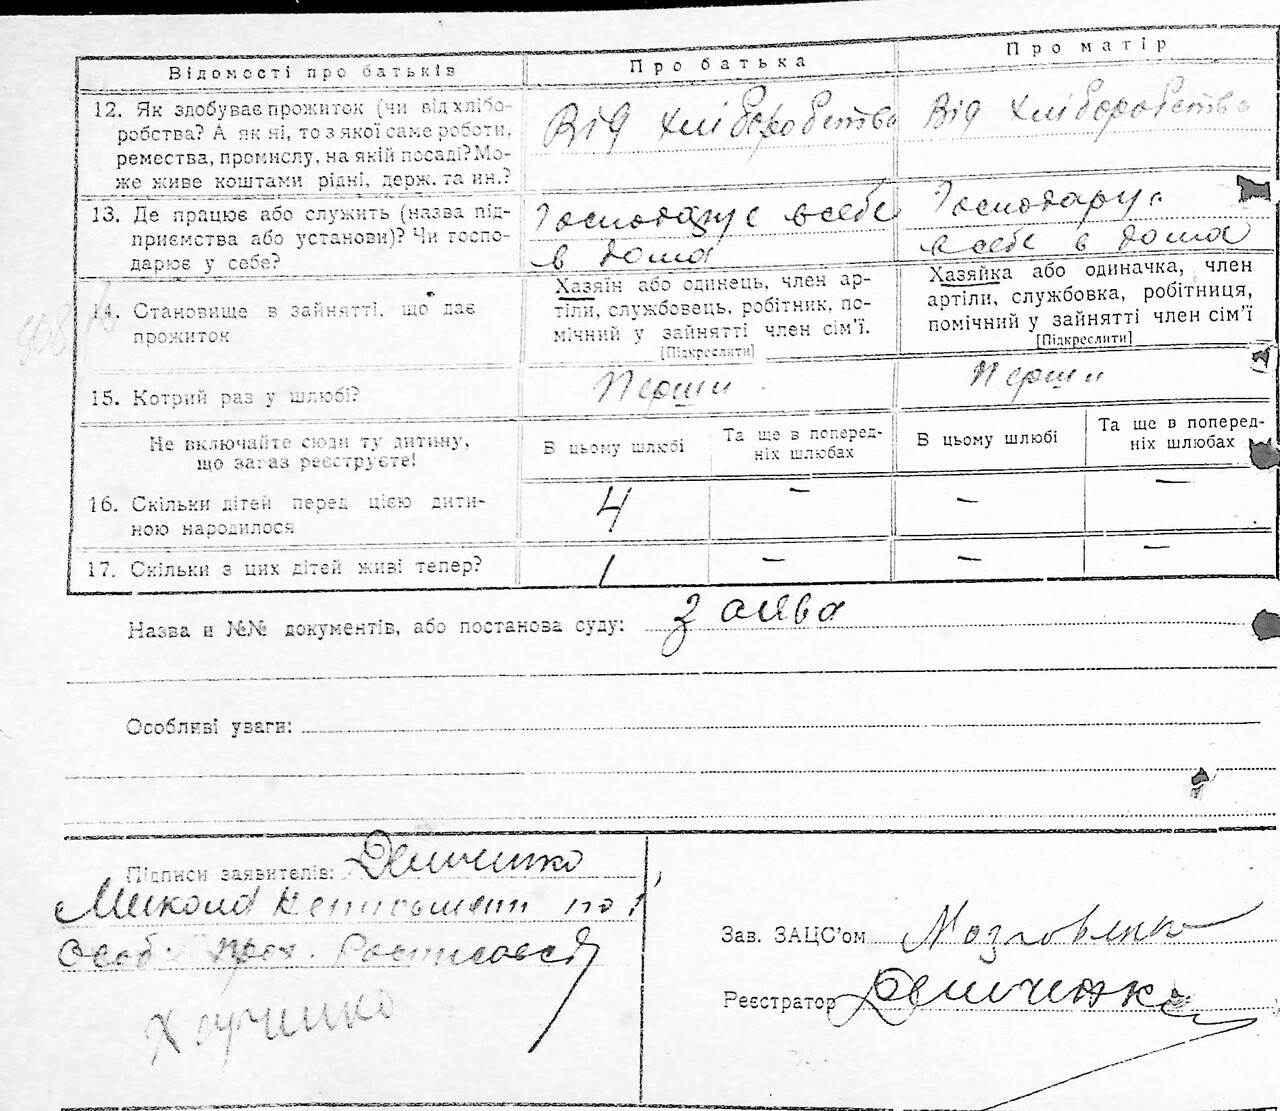 Відомості про батьків
Про батька
Про матір
12. Як здобуває прожиток (чи від хлібо-
робства? А як ні, то з якої саме роботи,
ремества, промислу, на якій посаді? Мо-
же живе коштами рідні, держ. та ин.?
Від хліборобства
Від хліборобства
13. Де працює або служить (назва під-
приємства або установи)? Чи госпо-
дарює у себе?
Господарує в себе
в дома
Господарує
в себе в дома
14. Становище в зайнятті, що дає
прожиток
Хазяїн або одинець, член ар-
тіли, службовець, робітник, по-
мічний у зайнятті член сім'ї.
[Підкреслити]
Хазяйка або одиначка, член
артіли, службовка, робітниця,
помічний у зайнятті член сім'ї
[Підкреслити]
15. Котрий раз у шлюбі?
Перши
Перши
Не включайте сюди ту дитину,
що зараз реєструєте!
В цьому шлюбі
Та ще в поперед-
ніх шлюбах
В цьому шлюбі
Та ще в поперед-
ніх шлюбах
16. Скільки дітей перед цією дити-
ною народилося
4 — — —
17. Скільки з цих дітей живі тепер?
1 — — —
Назва и №№ документів, або постанова суду: заява
Особливі уваги:
Підписи заявителів: Демченко
Микола неписьмен по
особ. прох. Ростисовсь
Зав. ЗАЦС'ом
Реєстратор Демченко